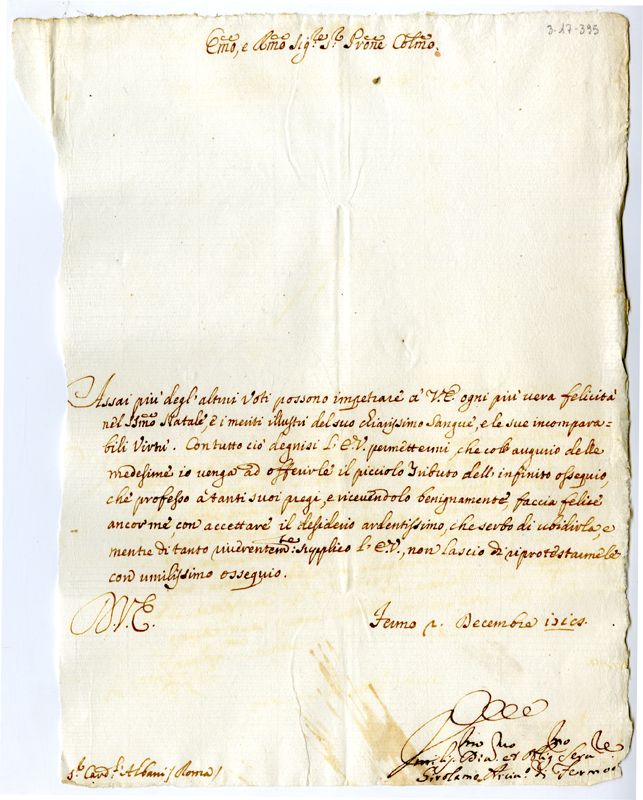 3-17-395
Emo, e Rmo Sigre Sr Prone Colmo.
Assai più degl'altrui Voti possono impetrare à V.E. ogni più vera felicità
nel Ssmo Natale è i meriti illustri del suo chiarissimo Sangue, e le sue incompara-
bili Virtù. Con tutto ciò degnisi l'E.V. permettermi, che coll'augurio delle
medesime io venga ad offerirle il picciolo tributo dell'infinito ossequio,
che professo à tanti suoi pregi, e ricevendolo benignamente, faccia felice
ancor me con accettare il desiderio ardentissimo, che serbo di ubidirla, e
mentre di tanto riverentemte supplico l'E.V., non lascio di riprotestarmele
con umilissimo ossequio.
D.V.E.
Fermo Decembre
Umilis. Dmo et Oblig Sere
Sr Cardl Albani / Roma /
Girolamo di Fermo